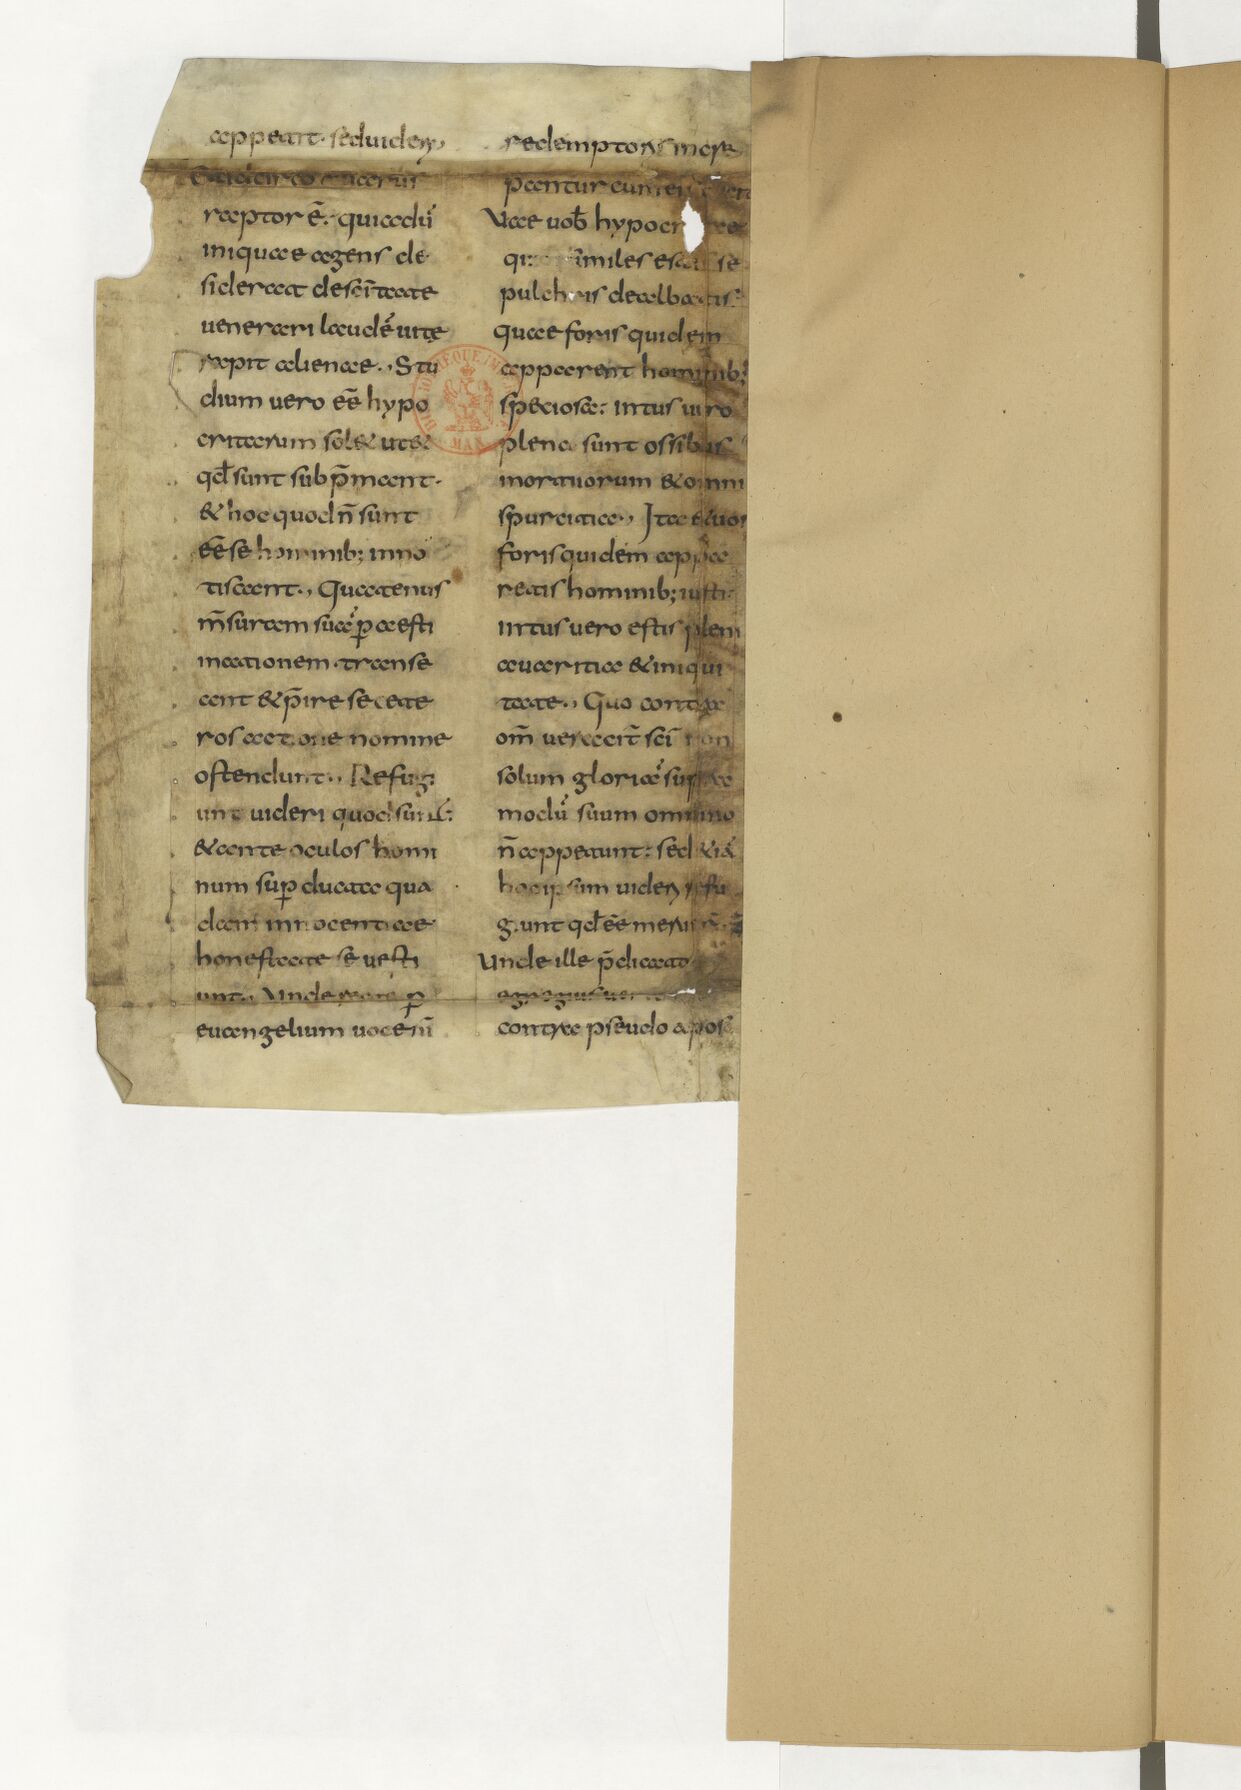 appetit. sed uideri,
Et idcirco
raptor ē. quia dū
iniquae agens de
siderat de sc̄itate
uenerari laudē uitę
rapit alienae., Stu
dium uero eē hypo
critarum solet
qd̄ sunt subp̄mant.
& hoc quod n̄ sunt
eē se hominib; inno
tiscant., Quatenus
m̄suram suā p̱ aesti
mationem. transe
ant & p̄ire se cete
ros nomine
ostendunt., Refugi
unt uideri quod sunt:
& ante oculos homi
num sup̱ ducata qua
dam innocentiae
honestate se uesti
unt., Unde p̱
euangelium uoce n̄i
redemptoris incre
pantur cum eis
Uae uob̄ hypocritae
qui similes estis se
pulchris dealbatis:
quae foris quidem
apparent hominib;
speciosa: intus uero
plena sunt ossibus
mortuorum & omni
spurcitia., Ita & uos
foris quidem appa
retis hominib; iusti.
intus uero estis pleni
auaritia & iniqui
tate., Quo contra
om̄ sc̄i non
solum gloriā supra
modū suum omnino
n̄ appetunt: sed & iā
hoc ipsum uideri refu
giunt qd̄ eē
Unde ille p̄dicator
egregius
contra pseudo apos